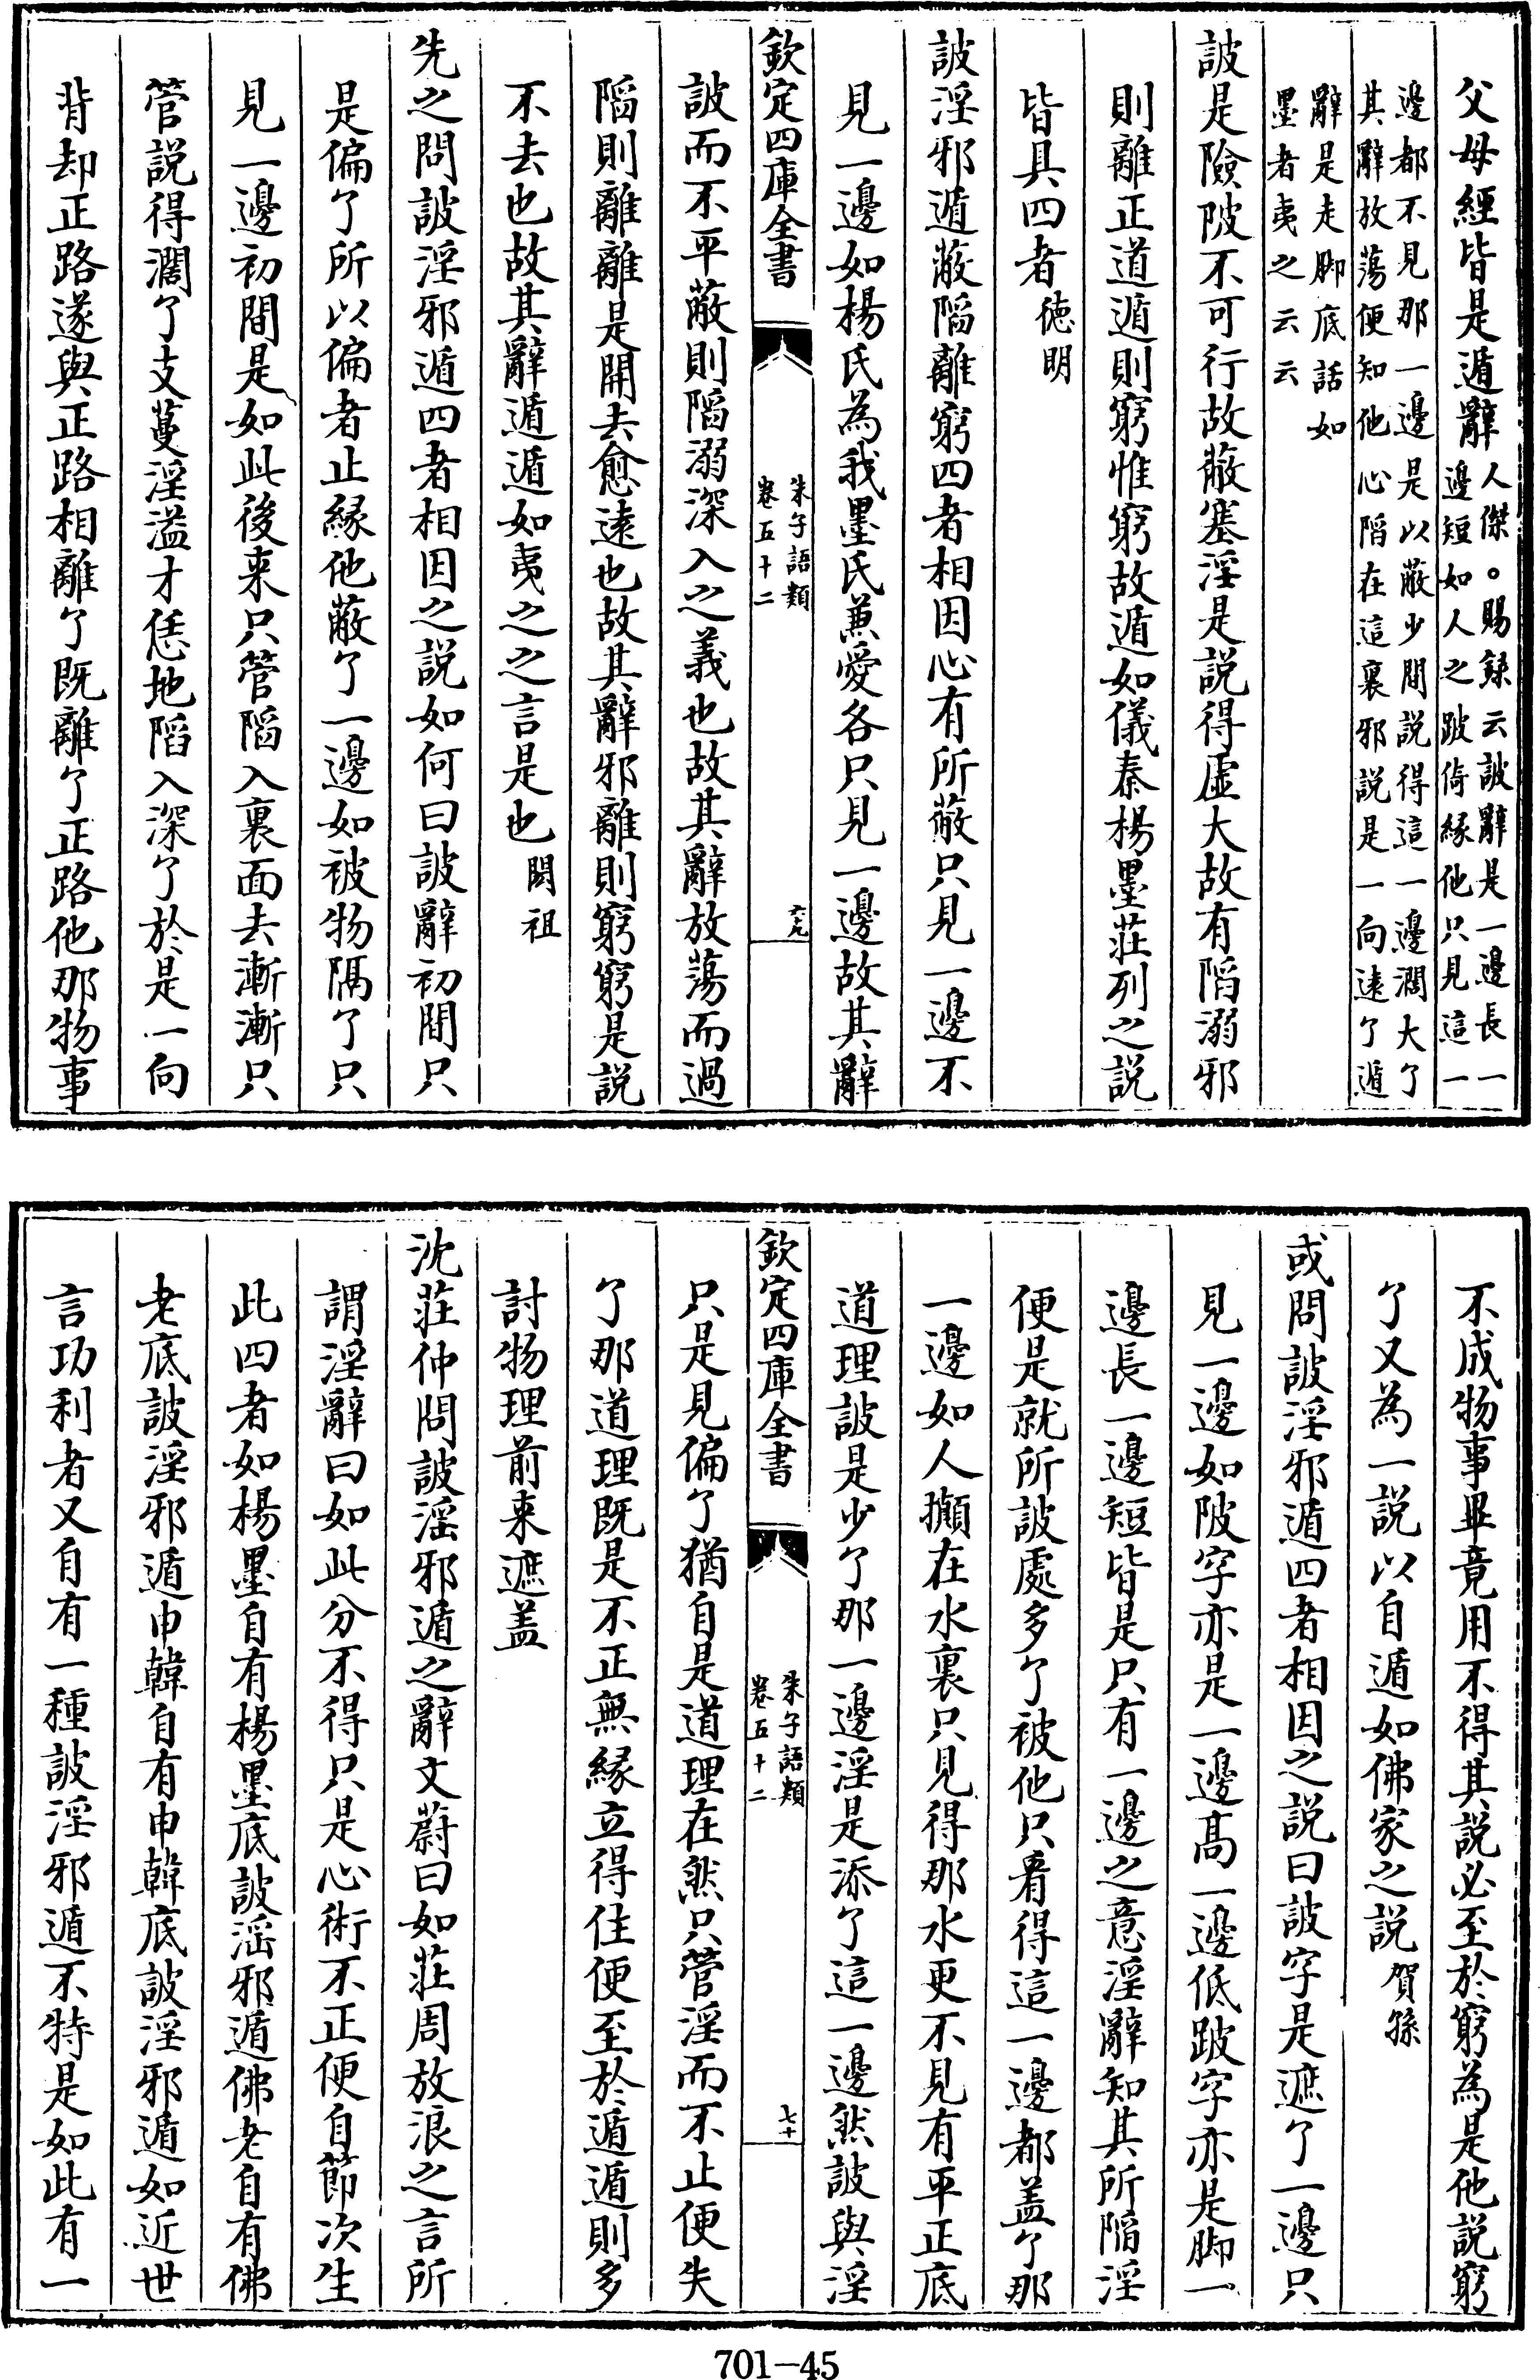 父母經皆是遁辭人傑。賜録云詖辭是一邊長一
邊短如人之跛倚縁他只見這一
邊都不見那一邊是以蔽少間說得這一邊濶大了
其辭放蕩便知他心陷在這裏邪說是一向逺了遁
辭是走脚底話如
墨者夷之云云
詖是險陂不可行故蔽塞淫是說得虛大故有陷溺邪
則離正道遁則窮惟窮故遁如儀秦楊墨莊列之說
皆具四者徳明
詖淫邪遁蔽陷離窮四者相因心有所蔽只見一邊不
見一邊如楊氏為我墨氏兼愛各只見一邊故其辭
欽定四庫全書 朱子語類 卷五十二 六九
詖而不平蔽則陷溺深入之義也故其辭放蕩而過
陷則離離是開去愈逺也故其辭邪離則窮窮是說
不去也故其辭遁遁如夷之之言是也閎祖
先之問詖淫邪遁四者相因之說如何曰詖辭初間只
是偏了所以偏者止縁他蔽了一邊如被物隔了只
見一邊初間是如此後来只管陷入裏面去漸漸只
管說得濶了支蔓淫溢才恁地陷入深了於是一向
背却正路遂與正路相離了既離了正路他那物事
不成物事畢竟用不得其說必至於窮為是他說窮
了又為一說以自遁如佛家之說賀孫
或問詖淫邪遁四者相因之說曰詖字是遮了一邊只
見一邊如陂字亦是一邊髙一邊低跛字亦是脚一
邊長一邊短皆是只有一邊之意淫辭知其所陷淫
便是就所詖處多了被他只看得這一邊都盖了那
一邊如人攧在水裏只見得那水更不見有平正底
道理詖是少了那一邊淫是添了這一邊然詖與淫
欽定四庫全書 朱子語類 卷五十二 七十
只是見偏了猶自是道理在然只管淫而不止便失
了那道理既是不正無縁立得住便至於遁遁則多
討物理前来遮盖
沈莊仲問詖淫邪遁之辭文蔚曰如莊周放浪之言所
謂淫辭曰如此分不得只是心術不正便自節次生
此四者如楊墨自有楊墨底詖淫邪遁佛老自有佛
老底詖淫邪遁申韓自有申韓底詖淫邪遁如近世
言功利者又自有一種詖淫邪遁不特是如此有一
701-45